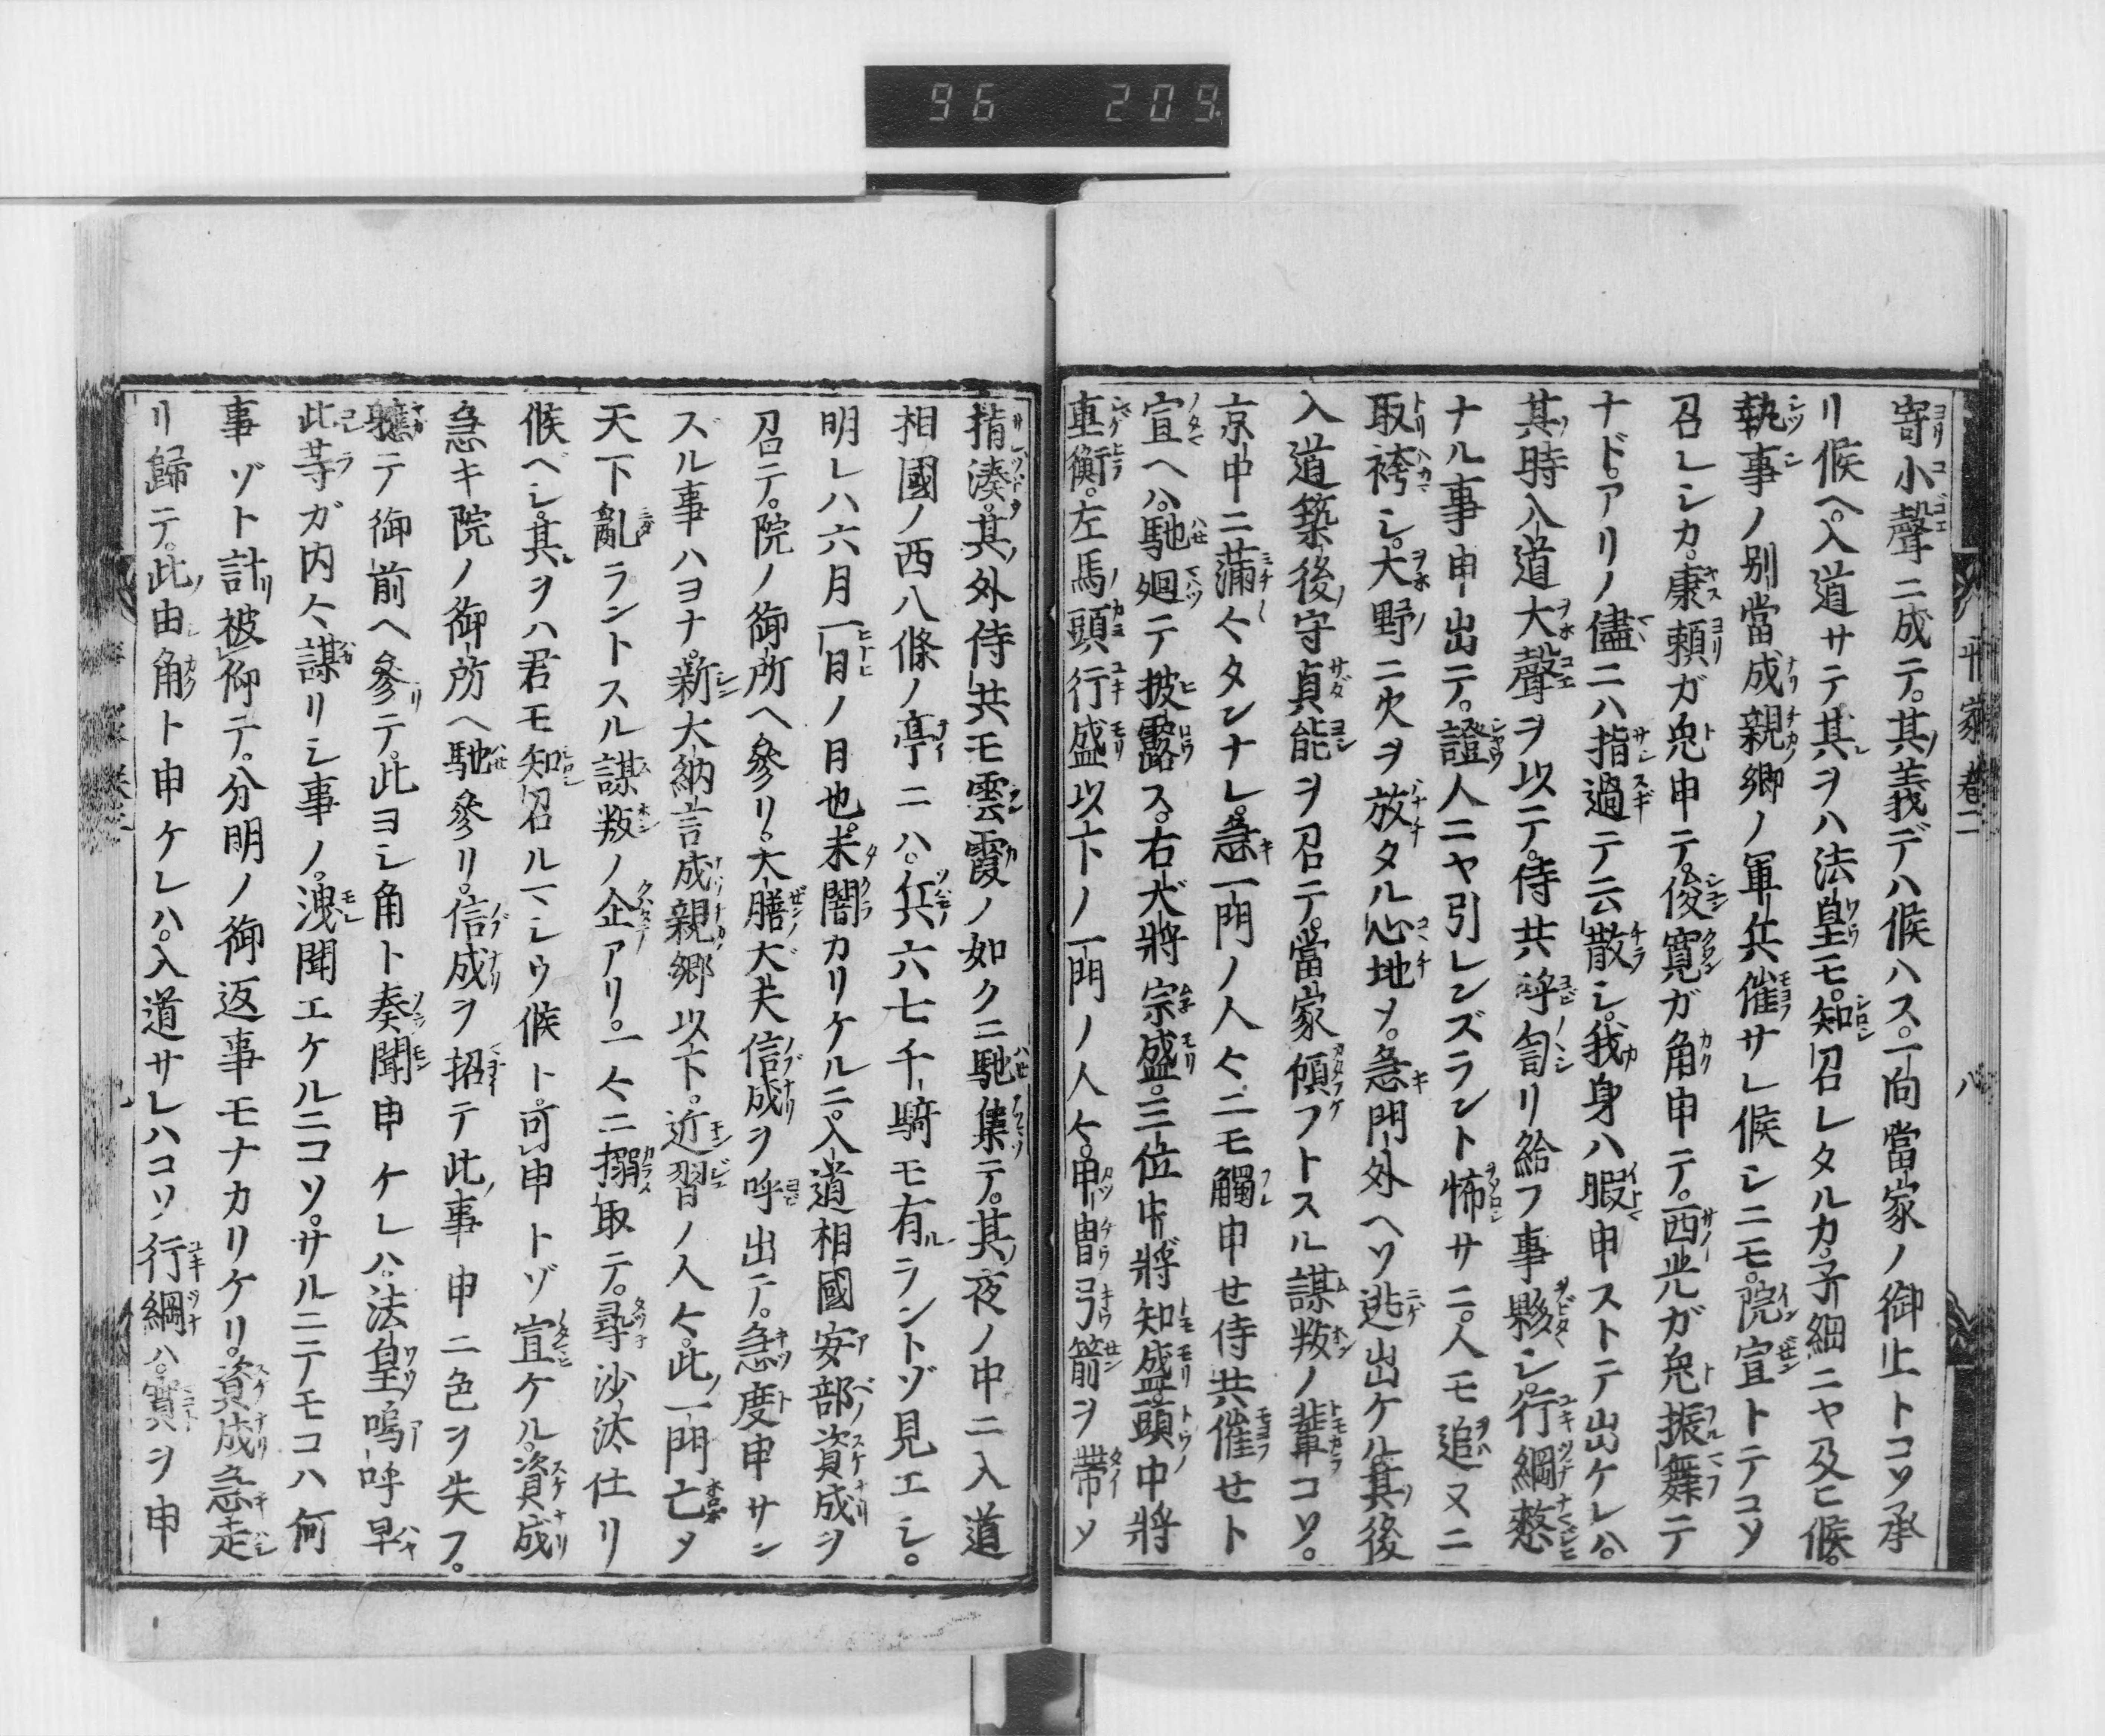 96 209
平家巻二 八
寄小聲ニ成テ。其ノ義デハ候ハス。一向當家ノ御上トコソ承
リ候ヘ。入道サテ其レヲハ法皇モ。知召レタルカ。子細ニヤ及ヒ候。
執事ノ別當成親卿ノ軍兵催サレ候シニモ。院宣トテコソ
召レシカ。康頼ガ兎申テ。俊寛ガ角申テ。西光ガ兎振舞テ
ナド。アリノ儘ニハ指過テ云散シ。我身ハ暇申ストテ出ケレハ。
其時入道大聲ヲ以テ。侍共呼訇リ給フ事夥シ。行綱憖
ナル事申出テ。證人ニヤ引レンズラント怖サニ。人モ追ヌニ
取袴シ。大野ニ火ヲ放タル心地ソ。急門外ヘソ逃出ケル。其後
入道築後ノ守貞能ヲ召テ。當家傾フトスル謀叛ノ輩コソ。
京中ニ蒲々タンナレ。急一門ノ人々ニモ觸申せ侍共催せト
宣ヘハ。馳廻テ披露ス。右大將宗盛。三位中將知盛。頭中將
重衡。左馬頭行盛以下ノ一門ノ人々。甲冑弓箭ヲ帯ソ
指湊。其ノ外侍共モ雲霞ノ如クニ馳集テ。其ノ夜ノ中ニ入道
相國ノ西八條ノ亭ニハ。兵六七千騎モ有ラントゾ見エシ。
明レハ六月一日ノ月也。未闇カリケルニ。入道相國安部資成ヲ
召テ。院ノ御所ヘ參リ。大膳大夫信成ヲ呼出テ。急度申サン
ズル事ハヨナ。新大納言成親卿以下。近習ノ人々。此ノ一門亡ソ
天下亂ラントスル謀叛ノ企アリ。一々ニ搦取テ。尋沙汰仕リ
候ベシ。其レヲハ君モ知召ルマシウ候ト。可申トゾ宣ケル。資成
急キ院ノ御所ヘ馳參リ。信成ヲ招テ此ノ事申ニ色ヲ失フ。
軈テ御前ヘ參リテ。此ヨシ角ト奏聞申ケレハ。法皇嗚呼早
此等ガ内々謀リシ事ノ。洩聞エケルニコソ。サルニテモコハ何
事ゾト計リ被仰テ。分明ノ御返事モナカリケリ。資成急走
リ歸テ。此ノ由角ト申ケレハ。入道サレハコソ行綱ハ。實ヲ申